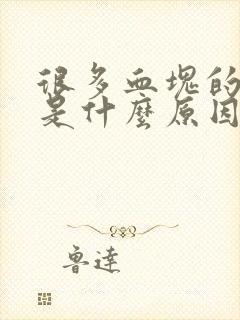 很多血塊的
是什麼原因
魯達